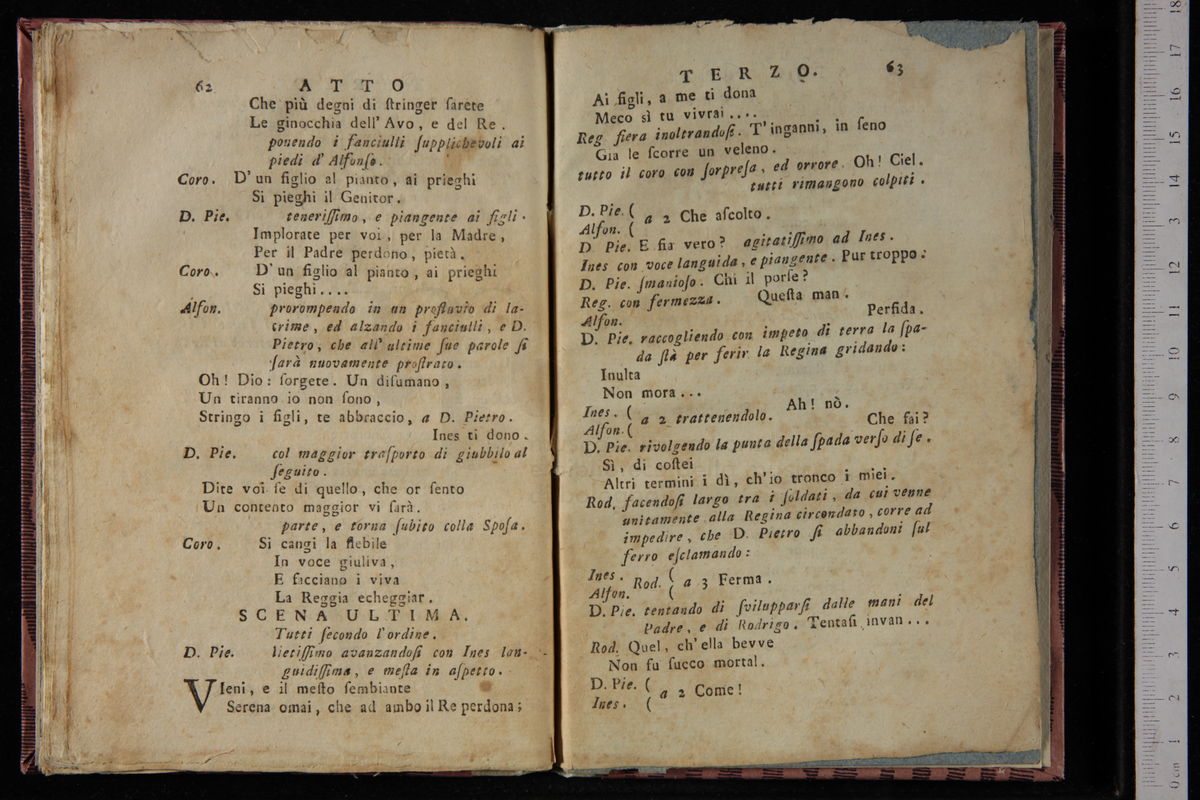 62 ATTO
Che più degni di ſtringer ſarete
Le ginocchia dell' Avo, e del Re.
ponendo i fanciulli ſupplichevoli ai
piedi d' Alfonſo.
Coro. D' un figlio al pianto, ai prieghi
Si pieghi il Genitor.
D. Pie. teneriſſimo, e piangente ai figli.
Implorate per voi, per la Madre,
Per il Padre perdono, pietà.
Coro. D' un figlio al pianto, ai prieghi
Si pieghi....
Alfon. prorompendo in un profluvio di la-
crime, ed alzando i fanciulli, e D.
Pietro, che all' ultime ſue parole ſi
ſarà nuovamente proſtrato.
Oh! Dio: ſorgete. Un diſumano,
Un tiranno io non ſono,
Stringo i figli, te abbraccio, a D. Pietro.
Ines ti dono.
D. Pie. col maggior traſporto di giubbilo al
ſeguito.
Dite voi ſe di quello, che or ſento
Un contento maggior vi ſarà.
parte, e torna ſubito colla Spoſa.
Coro. Si cangi la flebile
In voce giuliva,
E facciano i viva
La Reggia echeggiar.
SCENA ULTIMA.
Tutti ſecondo l'ordine.
D. Pie. lietiſſimo avanzandoſi con Ines lan-
guidiſſima, e meſta in aſpetto.
VIeni, e il meſto ſembiante
Serena omai, che ad ambo il Re perdona;
TERZO. 63
Ai figli, a me ti dona
Meco sì tu vivrai....
Reg fiera inoltrandoſi. T'inganni, in ſeno
Gia le ſcorre un veleno.
tutto il coro con ſorpreſa, ed orrore. Oh! Ciel.
tutti rimangono colpiti.
D. Pie. (
a 2 Che aſcolto.
Alfon. (
D Pie. E fia vero? agitatiſſimo ad Ines.
Ines con voce languida, e piangente. Pur troppo.
D. Pie. ſmanioſo. Chi il porſe?
Reg. con fermezza. Queſta man.
Alfon. Perfida.
D. Pie. raccogliendo con impeto di terra la ſpa-
da ſtà per ferir la Regina gridando:
Inulta
Non mora...
Ines. ( a 2 trattenendolo. Ah! nò.
Alfon. ( Che fai?
D. Pie. rivolgendo la punta della ſpada verſo di ſe.
Sì, di coſtei
Altri termini i dì, ch'io tronco i miei.
Rod. facendoſi largo tra i ſoldati, da cui venne
unitamente alla Regina circondato, corre ad
impedire, che D. Pietro ſi abbandoni ſul
ferro eſclamando:
Ines. (
Rod. a 3 Ferma.
Alfon. (
D. Pie. tentando di ſvilupparſi dalle mani del
Padre, e di Rodrigo. Tentaſi invan...
Rod. Quel, ch'ella bevve
Non fu ſucco mortal.
D. Pie. (
a 2 Come!
Ines. (
0 cm 1 2 3 4 5 6 7 8 9 10 11 12 13 14 15 16 17 18